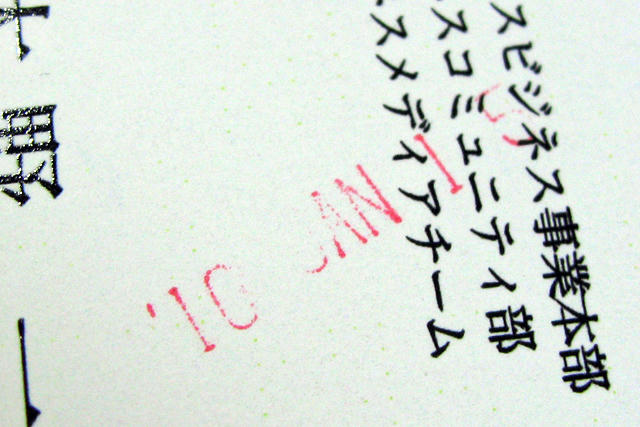 スビジネス事業本部
スコミュニティ部
スメディアチーム
一
'10 JAN 1